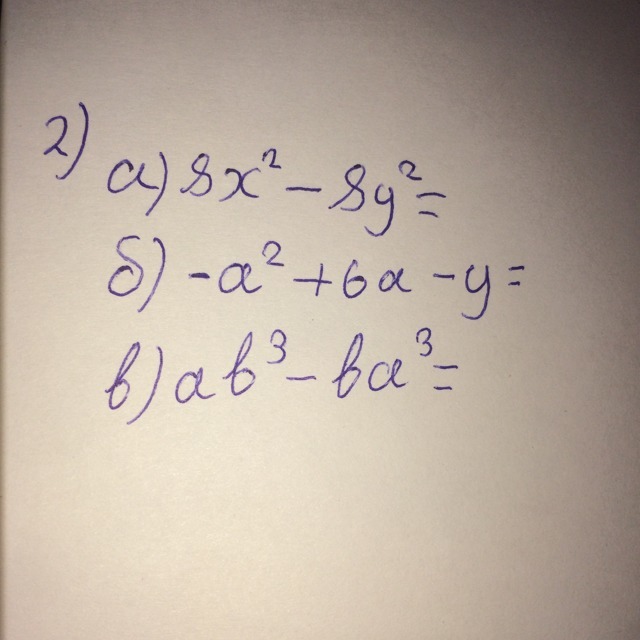 2)
а) 8x² - 8y² =
б) -a² + 6a - y =
в) ab³ - ba³ =